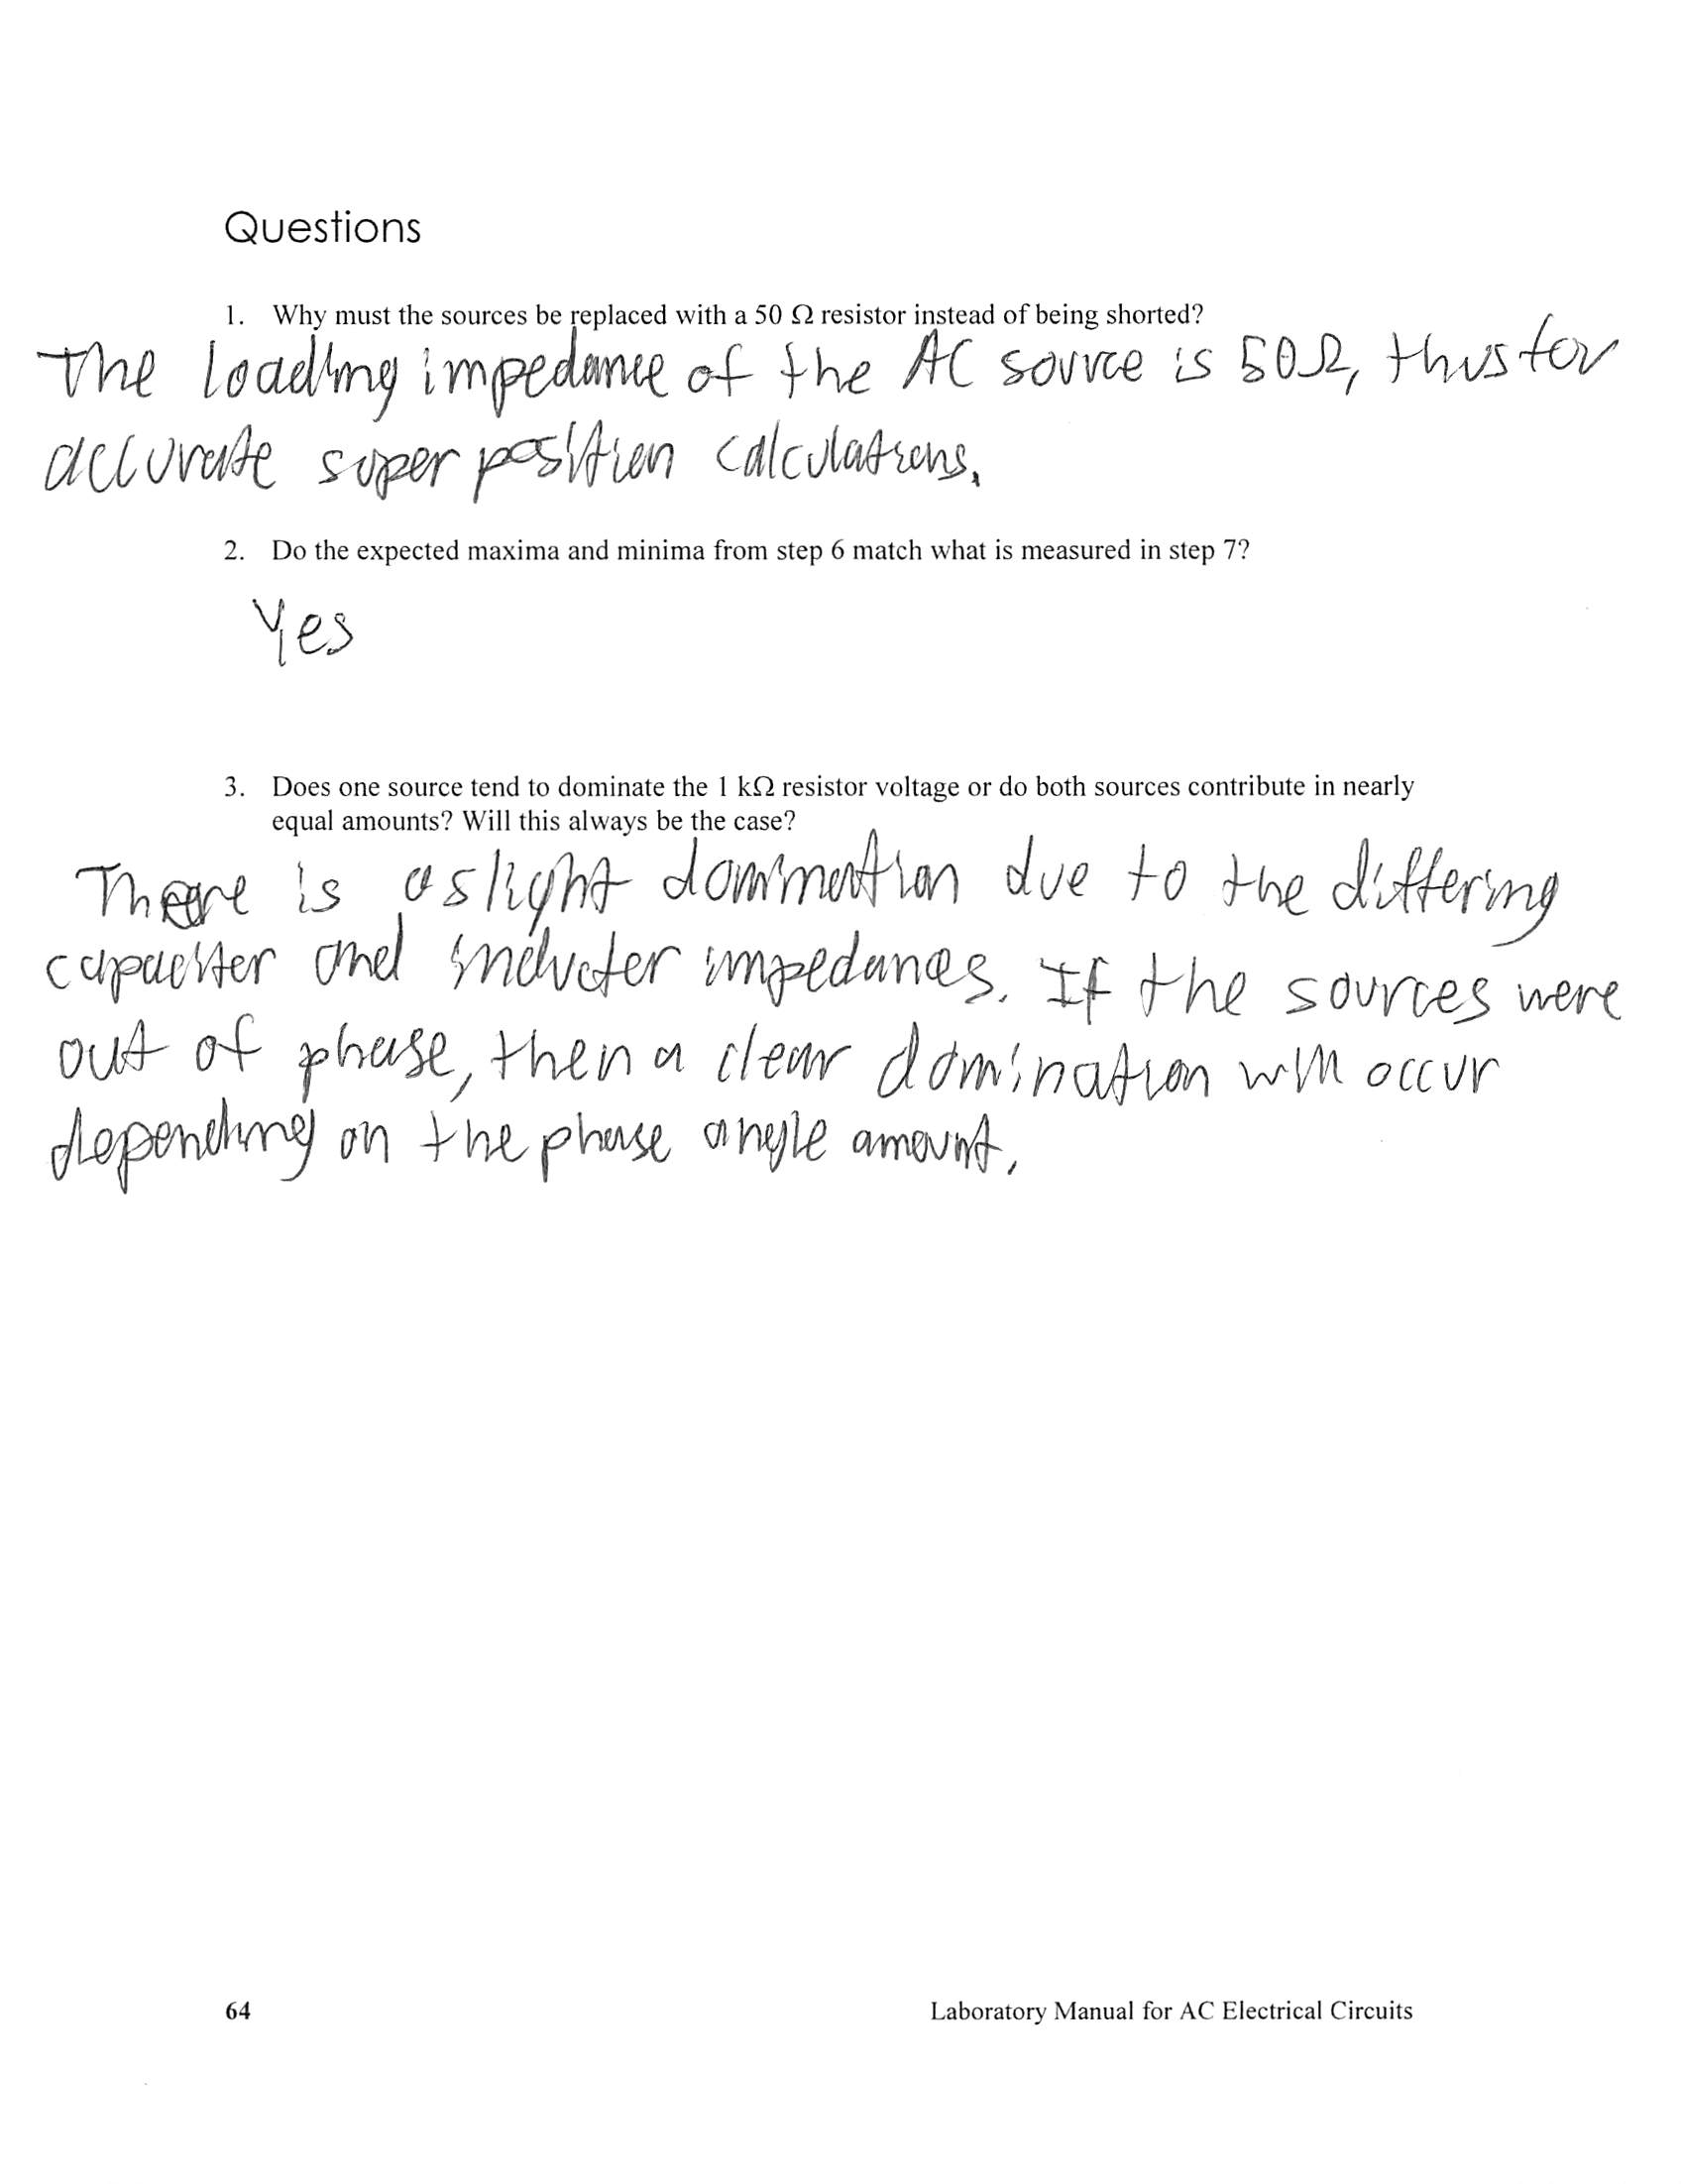 Questions
1. Why must the sources be replaced with a 50 Ω resistor instead of being shorted?
The loading impedance of the AC source is 50Ω, thus for
accurate superposition calculations.
2. Do the expected maxima and minima from step 6 match what is measured in step 7?
Yes
3. Does one source tend to dominate the 1 kΩ resistor voltage or do both sources contribute in nearly
equal amounts? Will this always be the case?
There is a slight domination due to the differing
capacitor and inductor impedances. If the sources were
out of phase, then a clear domination will occur
depending on the phase angle amount.
64 Laboratory Manual for AC Electrical Circuits